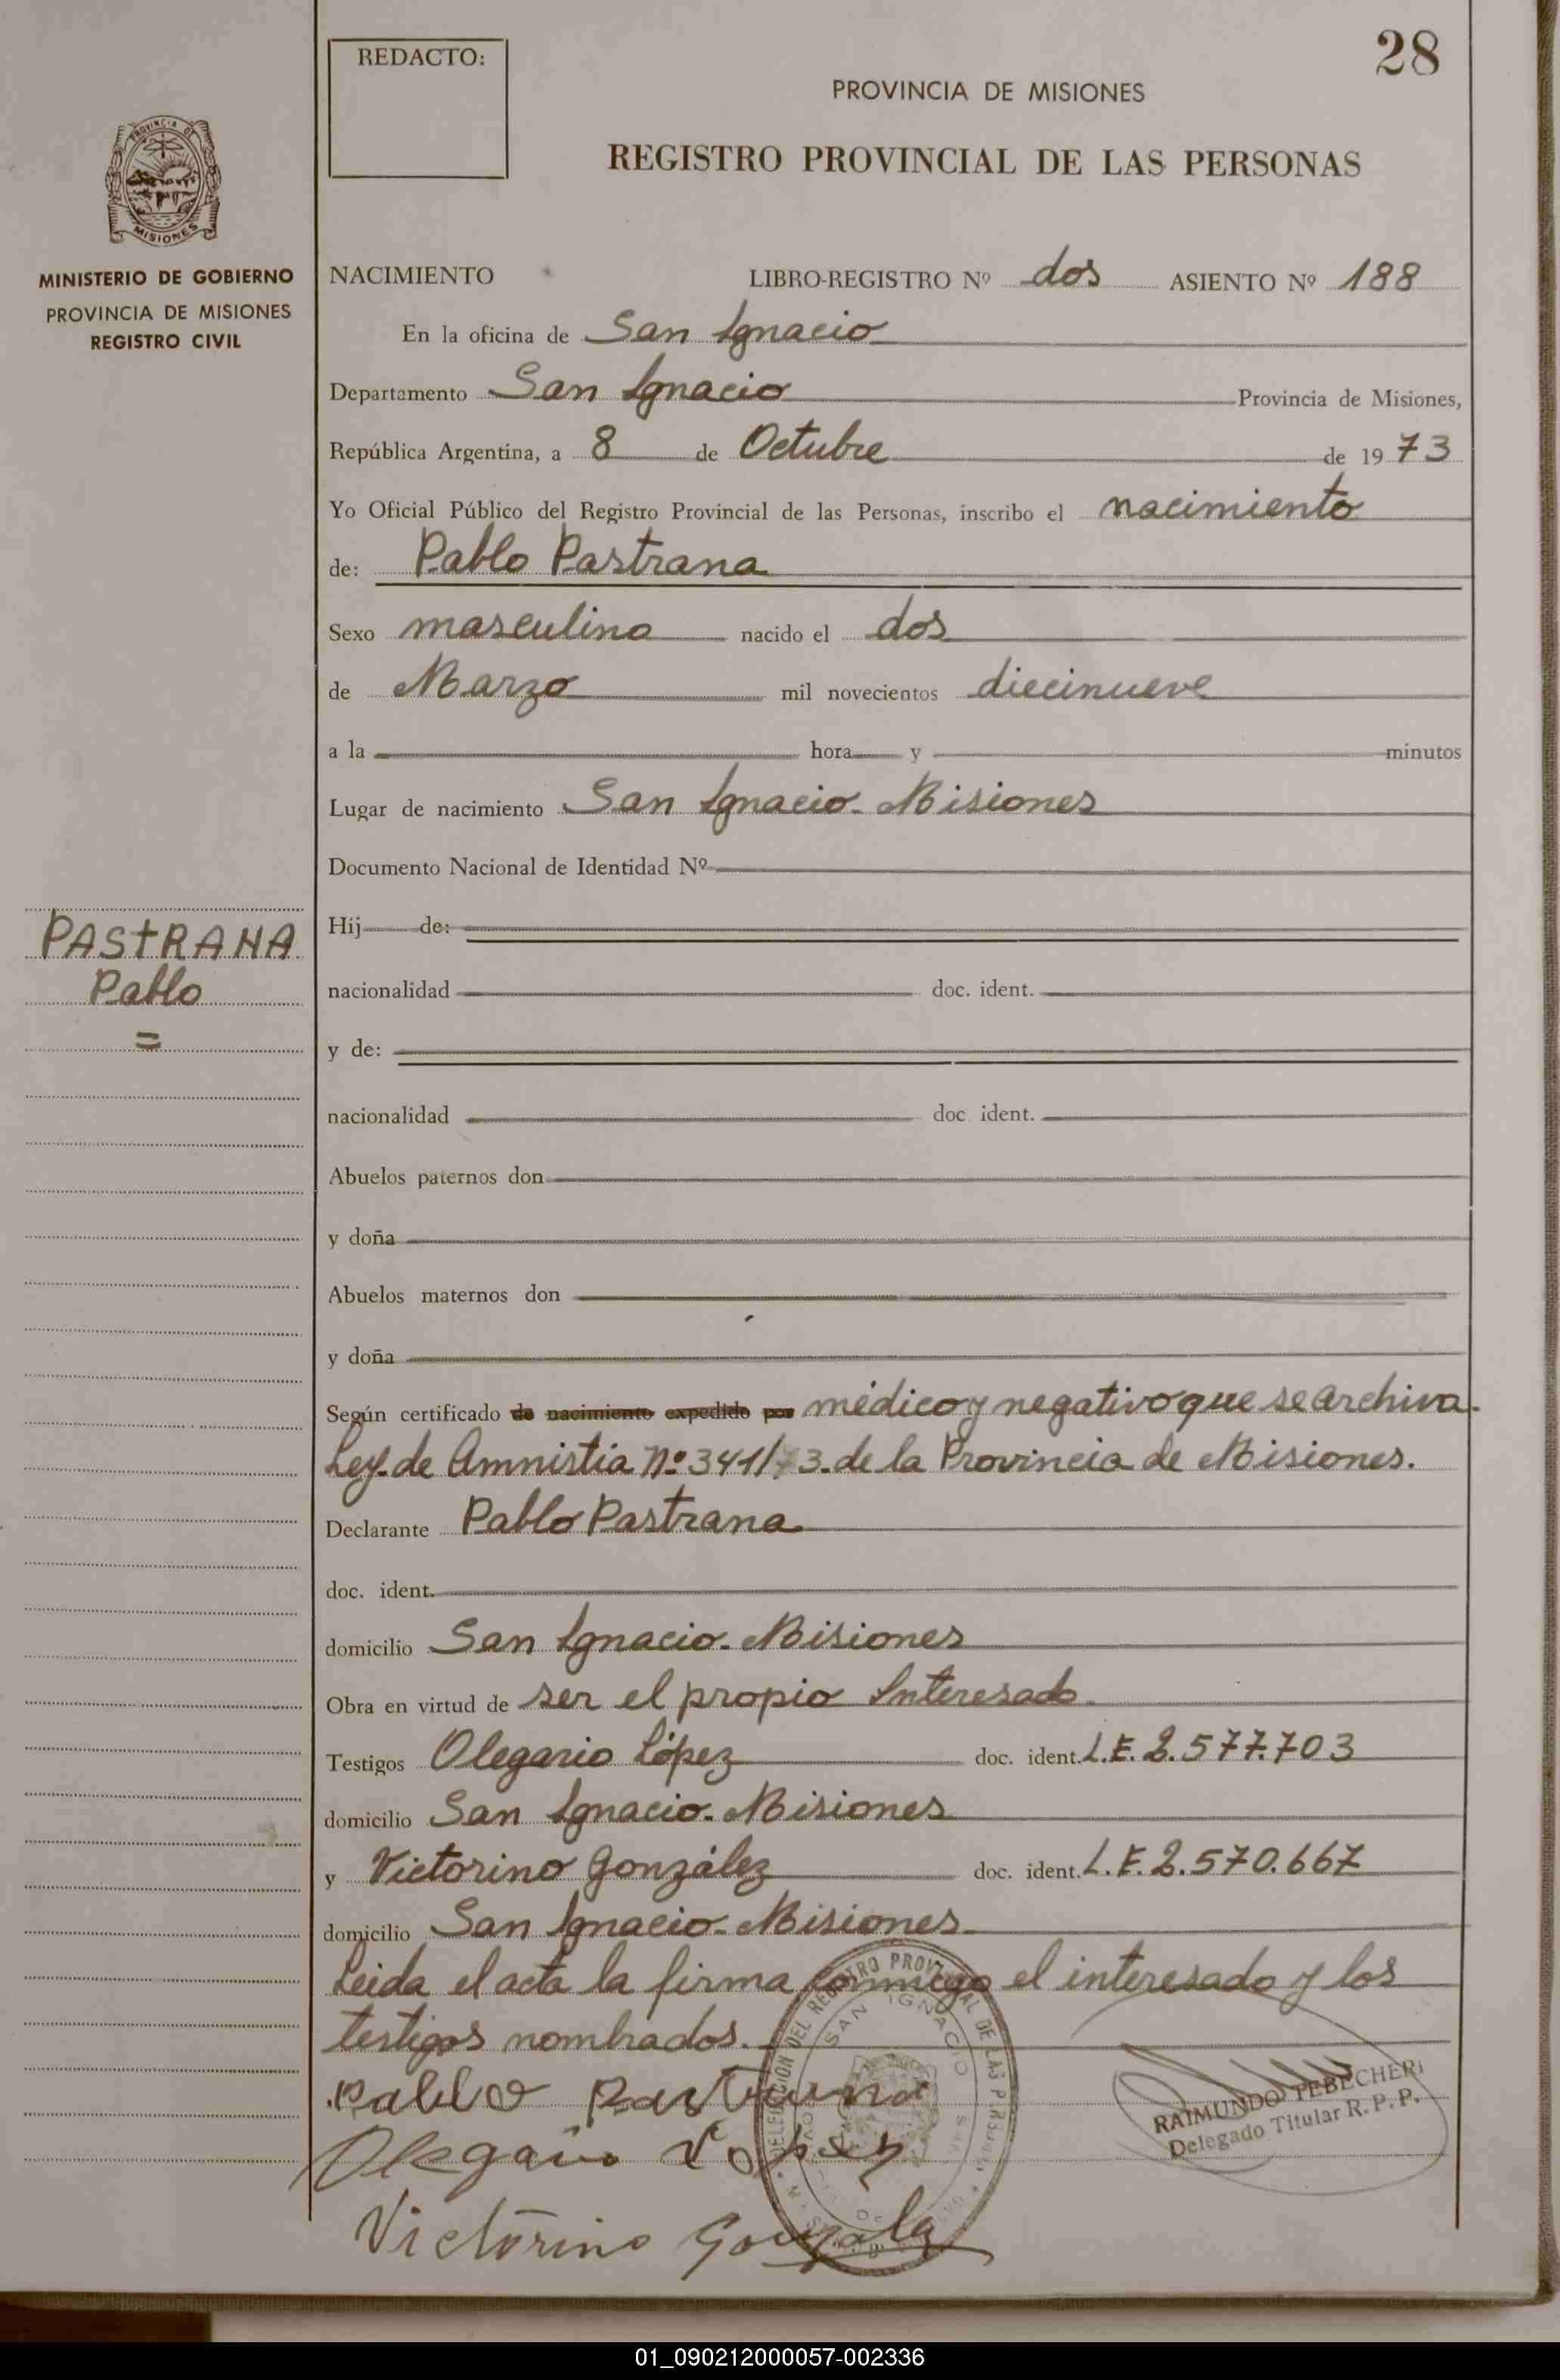 28
REDACTO:
PROVINCIA DE MISIONES
REGISTRO PROVINCIAL DE LAS PERSONAS
PROVINCIA DE
MISIONES
MINISTERIO DE GOBIERNO
PROVINCIA DE MISIONES
REGISTRO CIVIL
NACIMIENTO LIBRO-REGISTRO Nº dos ASIENTO Nº 188
En la oficina de San Ignacio
Departamento San Ignacio Provincia de Misiones,
República Argentina, a 8 de Octubre de 1973
Yo Oficial Público del Registro Provincial de las Personas, inscribo el nacimiento
de: Pablo Pastrana
Sexo masculino nacido el dos
de Marzo mil novecientos diecinueve
a la hora y minutos
Lugar de nacimiento San Ignacio-Misiones
Documento Nacional de Identidad Nº
PASTRANA
Pablo
=
Hij de:
nacionalidad doc. ident.
y de:
nacionalidad doc. ident.
Abuelos paternos don
y doña
Abuelos maternos don
y doña
Según certificado de nacimiento expedido por médico y negativo que se archiva.
Ley de Amnistía Nº 341/73. de la Provincia de Misiones.
Declarante Pablo Pastrana
doc. ident.
domicilio San Ignacio-Misiones
Obra en virtud de ser el propio Interesado.
Testigos Olegario López doc. ident. L.E. 2.577.703
domicilio San Ignacio-Misiones
y Victorino González doc. ident. L.E. 2.570.667
domicilio San Ignacio-Misiones
Leida el acta la firma conmigo el interesado y los
testigos nombrados.
DELEGACION DEL REGISTRO PROVINCIAL DE LAS PERSONAS
SAN IGNACIO
Pablo Pastrana
RAIMUNDO TEBECHERI
Delegado Titular R. P. P.
Olegario Lopez
Victorino Gonzalez
01_090212000057-002336